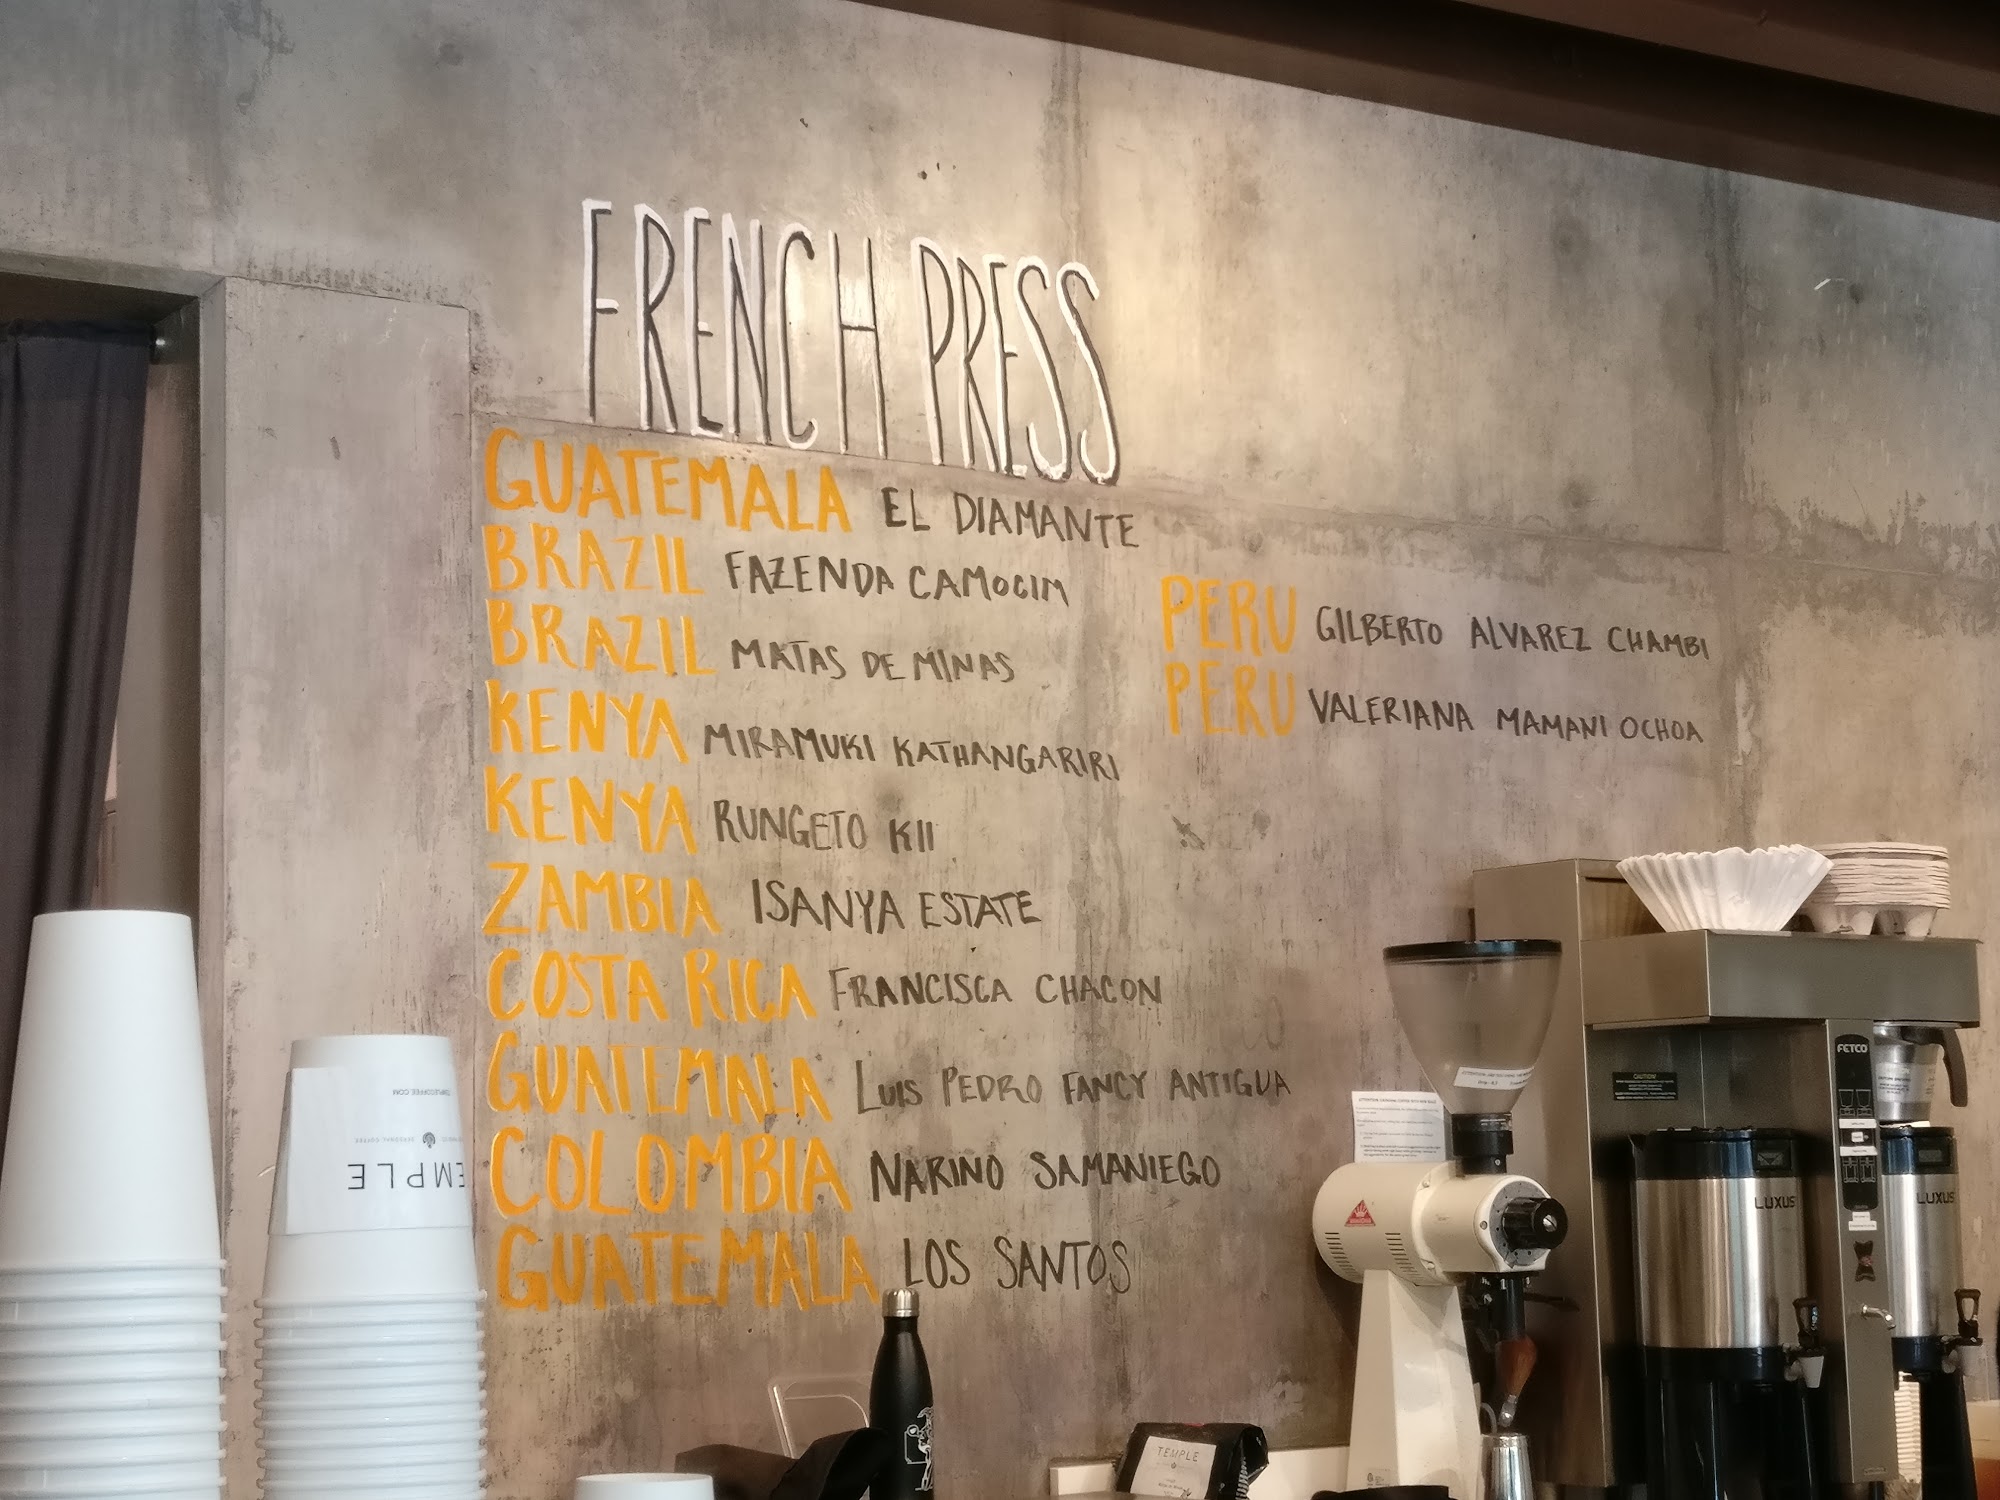 FRENCH PRESS
GUATEMALA EL DIAMANTE
BRAZIL FAZENDA CAMOCIM
BRAZIL MATAS DE MINAS
KENYA MIRAMUKI KATHANGARIRI
KENYA RUNGETO KII
ZAMBIA ISANYA ESTATE
COSTA RICA FRANCISCA CHACON
GUATEMALA LUIS PEDRO FANCY ANTIGUA
COLOMBIA NARINO SAMANIEGO
GUATEMALA LOS SANTOS
PERU GILBERTO ALVAREZ CHAMBI
PERU VALERIANA MAMANI OCHOA
TEMPLECOFFEE.COM
PERSONAL COFFEE
EMPLE
FETCO
CAUTION
LUXUS
LUXUS
TEMPLE